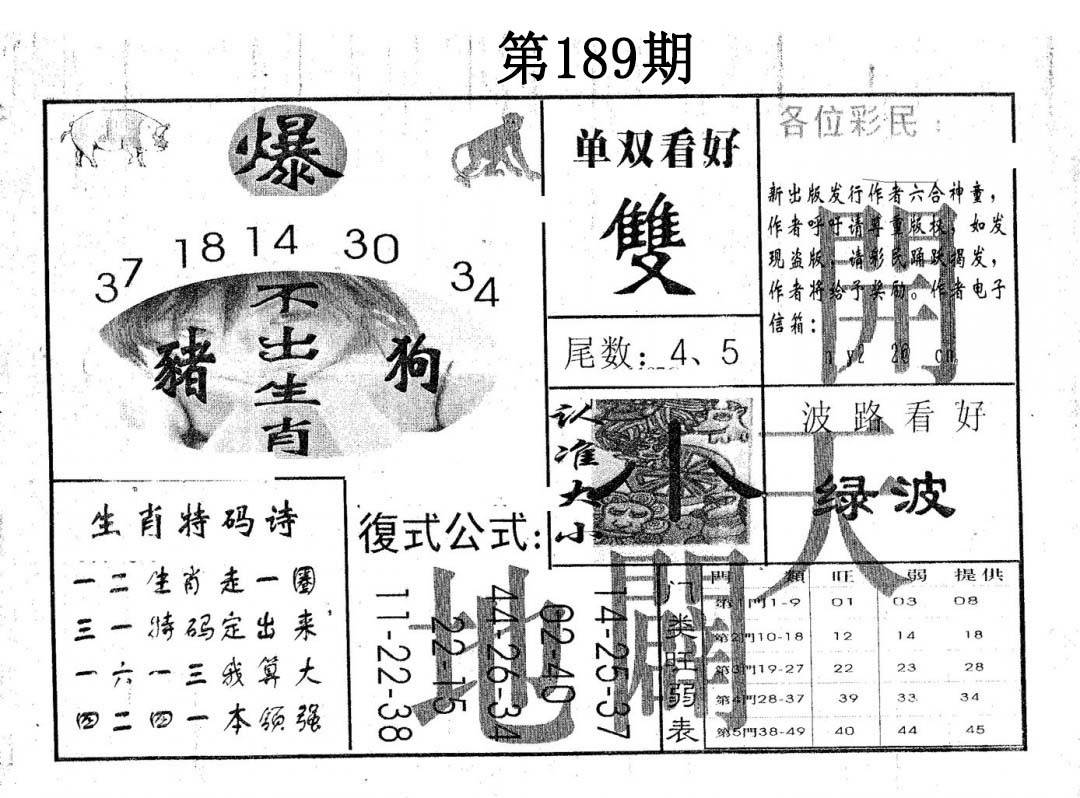 第189期
爆
37 18 14 30 34
不出生肖
豬
狗
单双看好
雙
尾数：4、5
各位彩民：
新出版发行作者六合神童，
作者呼吁请尊重版权，如发
现盗版，请彩民踊跃揭发，
作者将给予奖励。作者电子
信箱：
開
天
闢
地
认准大小
小
波路看好
绿波
生肖特码诗
一二生肖走一圈
三一特码定出来
一六一三我算大
四二四一本领强
復式公式:
11-22-38
22-15
44-26-34
02-40
14-25-37
门类旺弱表
門類 旺 弱 提供
第1門1-9 01 03 08
第2門10-18 12 14 18
第3門19-27 22 23 28
第4門28-37 39 33 34
第5門38-49 40 44 45